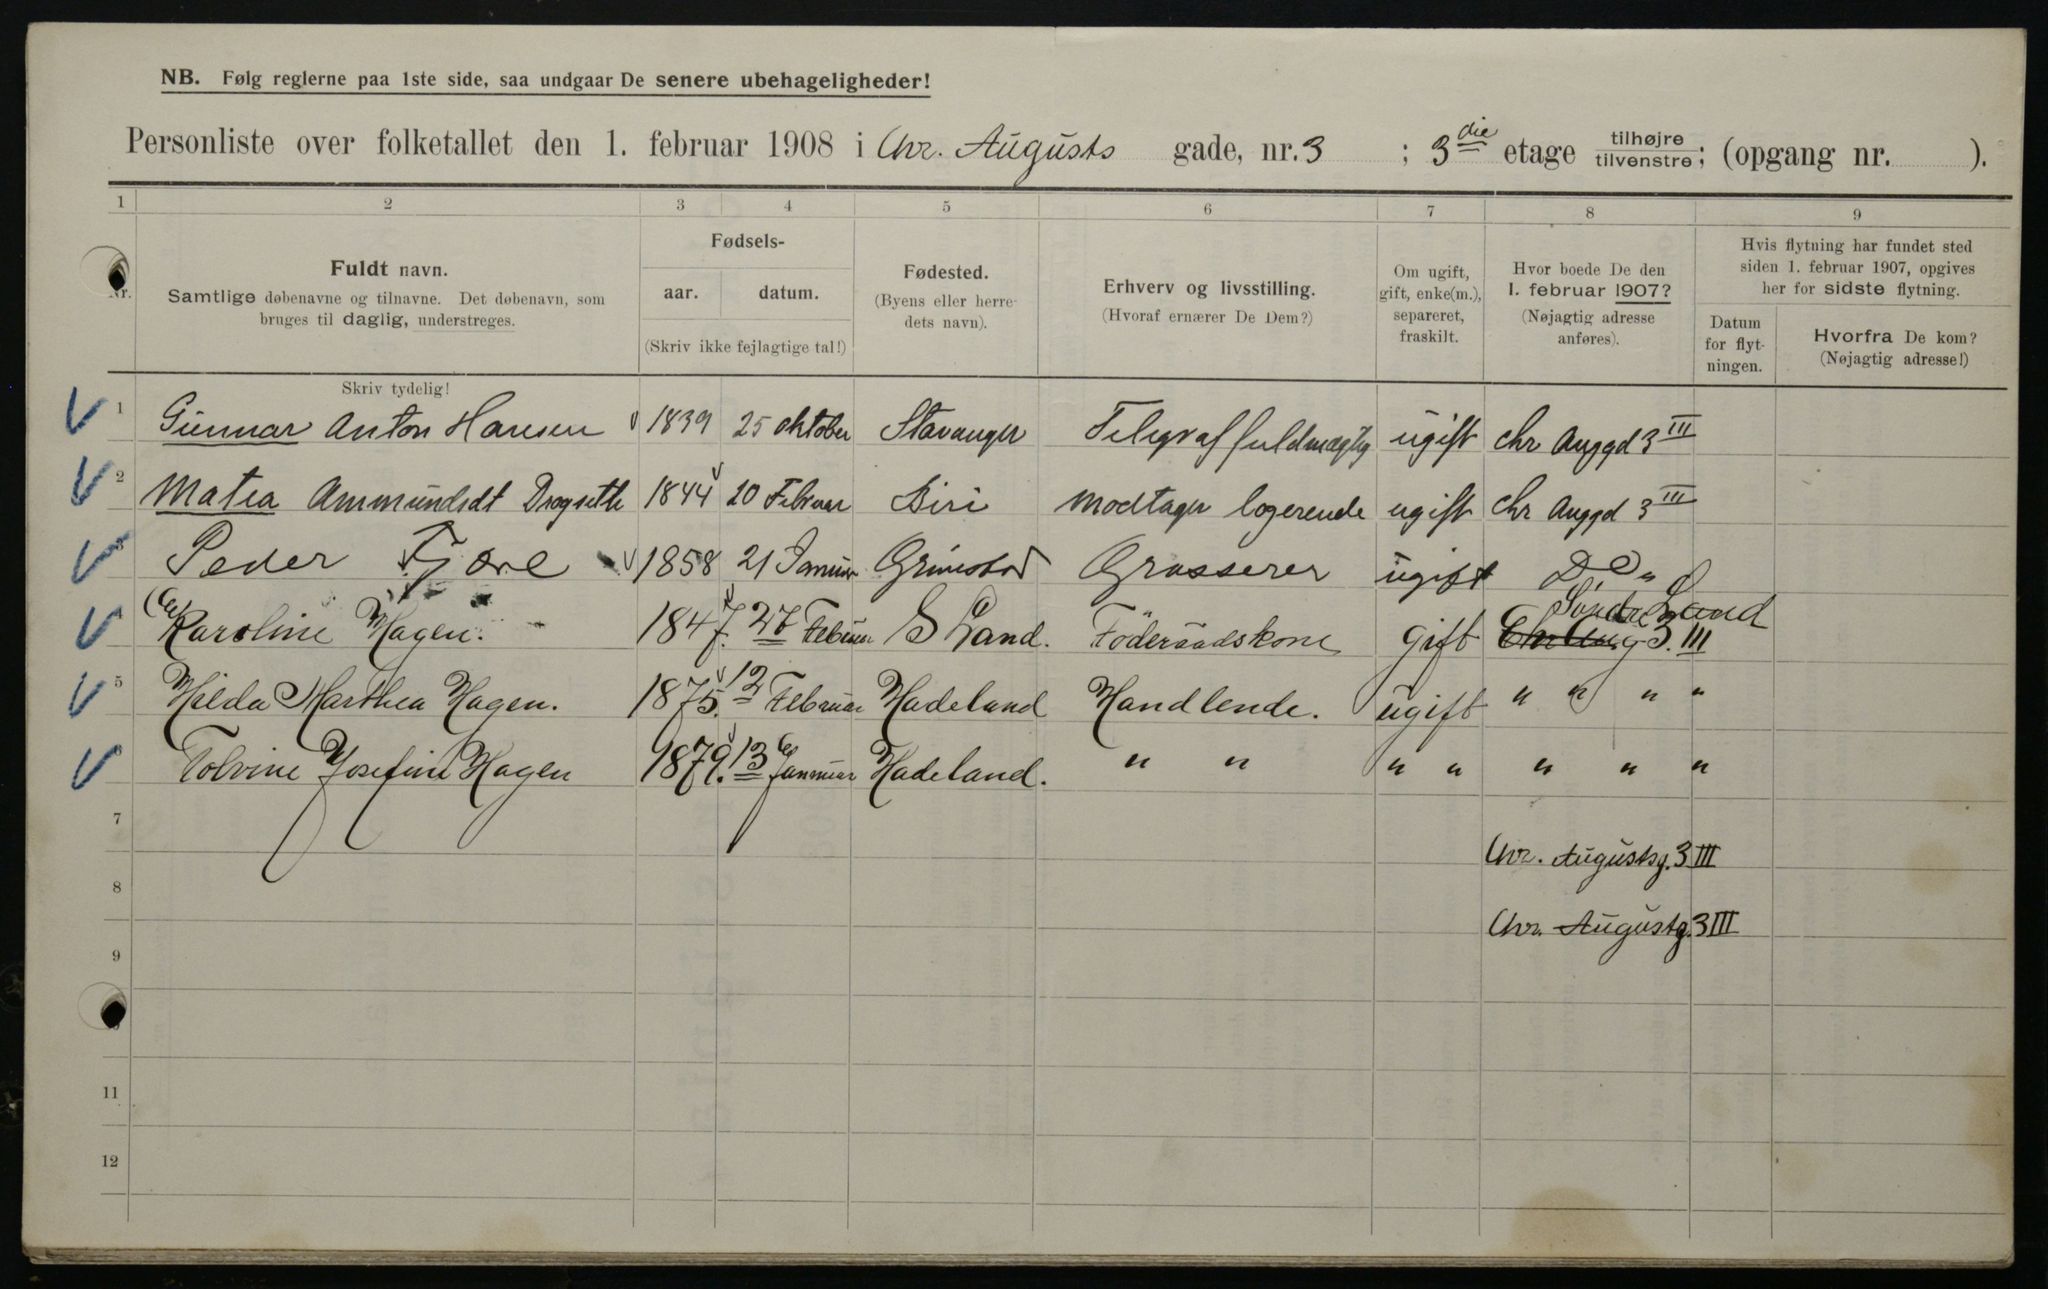 NB. Følg reglerne paa 1ste side, saa undgaar De senere ubehageligheder!
Personliste over folketallet den 1. februar 1908 i Chr. Augusts gade, nr. 3 ; 3die etage tilhøjre tilvenstre; (opgang nr. ).
1 2 3 4 5 6 7 8 9
Nr.
Fuldt navn.
Samtlige døbenavne og tilnavne. Det døbenavn, som
bruges til daglig, understreges.
Skriv tydelig!
Fødsels-
aar. datum.
(Skriv ikke fejlagtige tal!)
Fødested.
(Byens eller herre-
dets navn).
Erhverv og livsstilling.
(Hvoraf ernærer De Dem?)
Om ugift,
gift, enke(m.),
separeret,
fraskilt.
Hvor boede De den
1. februar 1907?
(Nøjagtig adresse
anføres).
Hvis flytning har fundet sted
siden 1. februar 1907, opgives
her for sidste flytning.
Datum
for flyt-
ningen.
Hvorfra De kom?
(Nøjagtig adresse!)
1 Gunnar Anton Hansen 1839 25 oktober Stavanger Telegraffuldmægtig ugift Chr Auggd 3 III
2 Matea Ammundsdt Drogseth 1844 20 Februar Biri Modtager logerende ugift Chr Auggd 3 III
3 Peder Fjære 1858 21 Januar Grimstad Grosserer ugift Do "
Karoline Hagen. 1847. 27 Februar S Land. Föderaadskone gift Chr Aug 3. III Söndre Land
5 Hilda Marthea Hagen. 1875. 12 Februar Hadeland Handlende. ugift " " " "
6 Tolvine Josefine Hagen 1879. 13 Januar Hadeland. " " " " " " "
7
Chr. Augustsg. 3 III
8
Chr. Augustg. 3 III
9
11
12